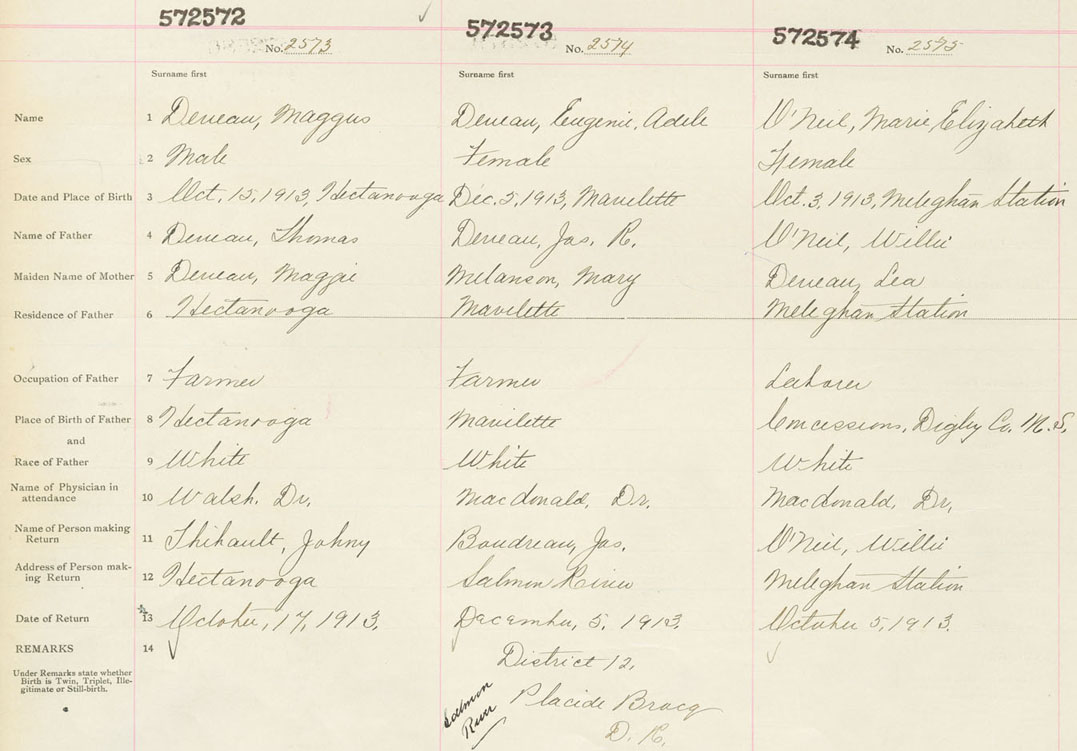 572572
572573
572574
No. 2573
No. 2574
No. 2575
Surname first
Surname first
Surname first
Name 1 Deveau, Maggus Deveau, Eugenie, Adele O'Neil, Marie Elizabeth
Sex 2 Male Female Female
Date and Place of Birth 3 Oct. 15, 1913, Hectanooga Dec. 5, 1913, Mavilette Oct. 3, 1913, Meteghan Station
Name of Father 4 Deveau, Thomas Deveau, Jas. R. O'Neil, Willie
Maiden Name of Mother 5 Deveau, Maggie Melanson, Mary Deveau, Lea
Residence of Father 6 Hectanooga Mavilette Meteghan Station
Occupation of Father 7 Farmer Farmer Laborer
Place of Birth of Father 8 Hectanooga Mavilette Concessions, Digby Co. N.S.
and
Race of Father 9 White White White
Name of Physician in
attendance 10 Walsh. Dr. Macdonald, Dr. Macdonald, Dr,
Name of Person making
Return 11 Thibault, Johny Boudreau, Jas. O'Neil, Willie
Address of Person mak-
ing Return 12 Hectanooga Salmon River Meteghan Station
Date of Return 13 October, 17, 1913. December, 5, 1913. October 5, 1913.
REMARKS 14
District 12.
Under Remarks state whether
Birth is Twin, Triplet, Ille-
gitimate or Still-birth.
Salmon
River
Placide Brocq
D. R.